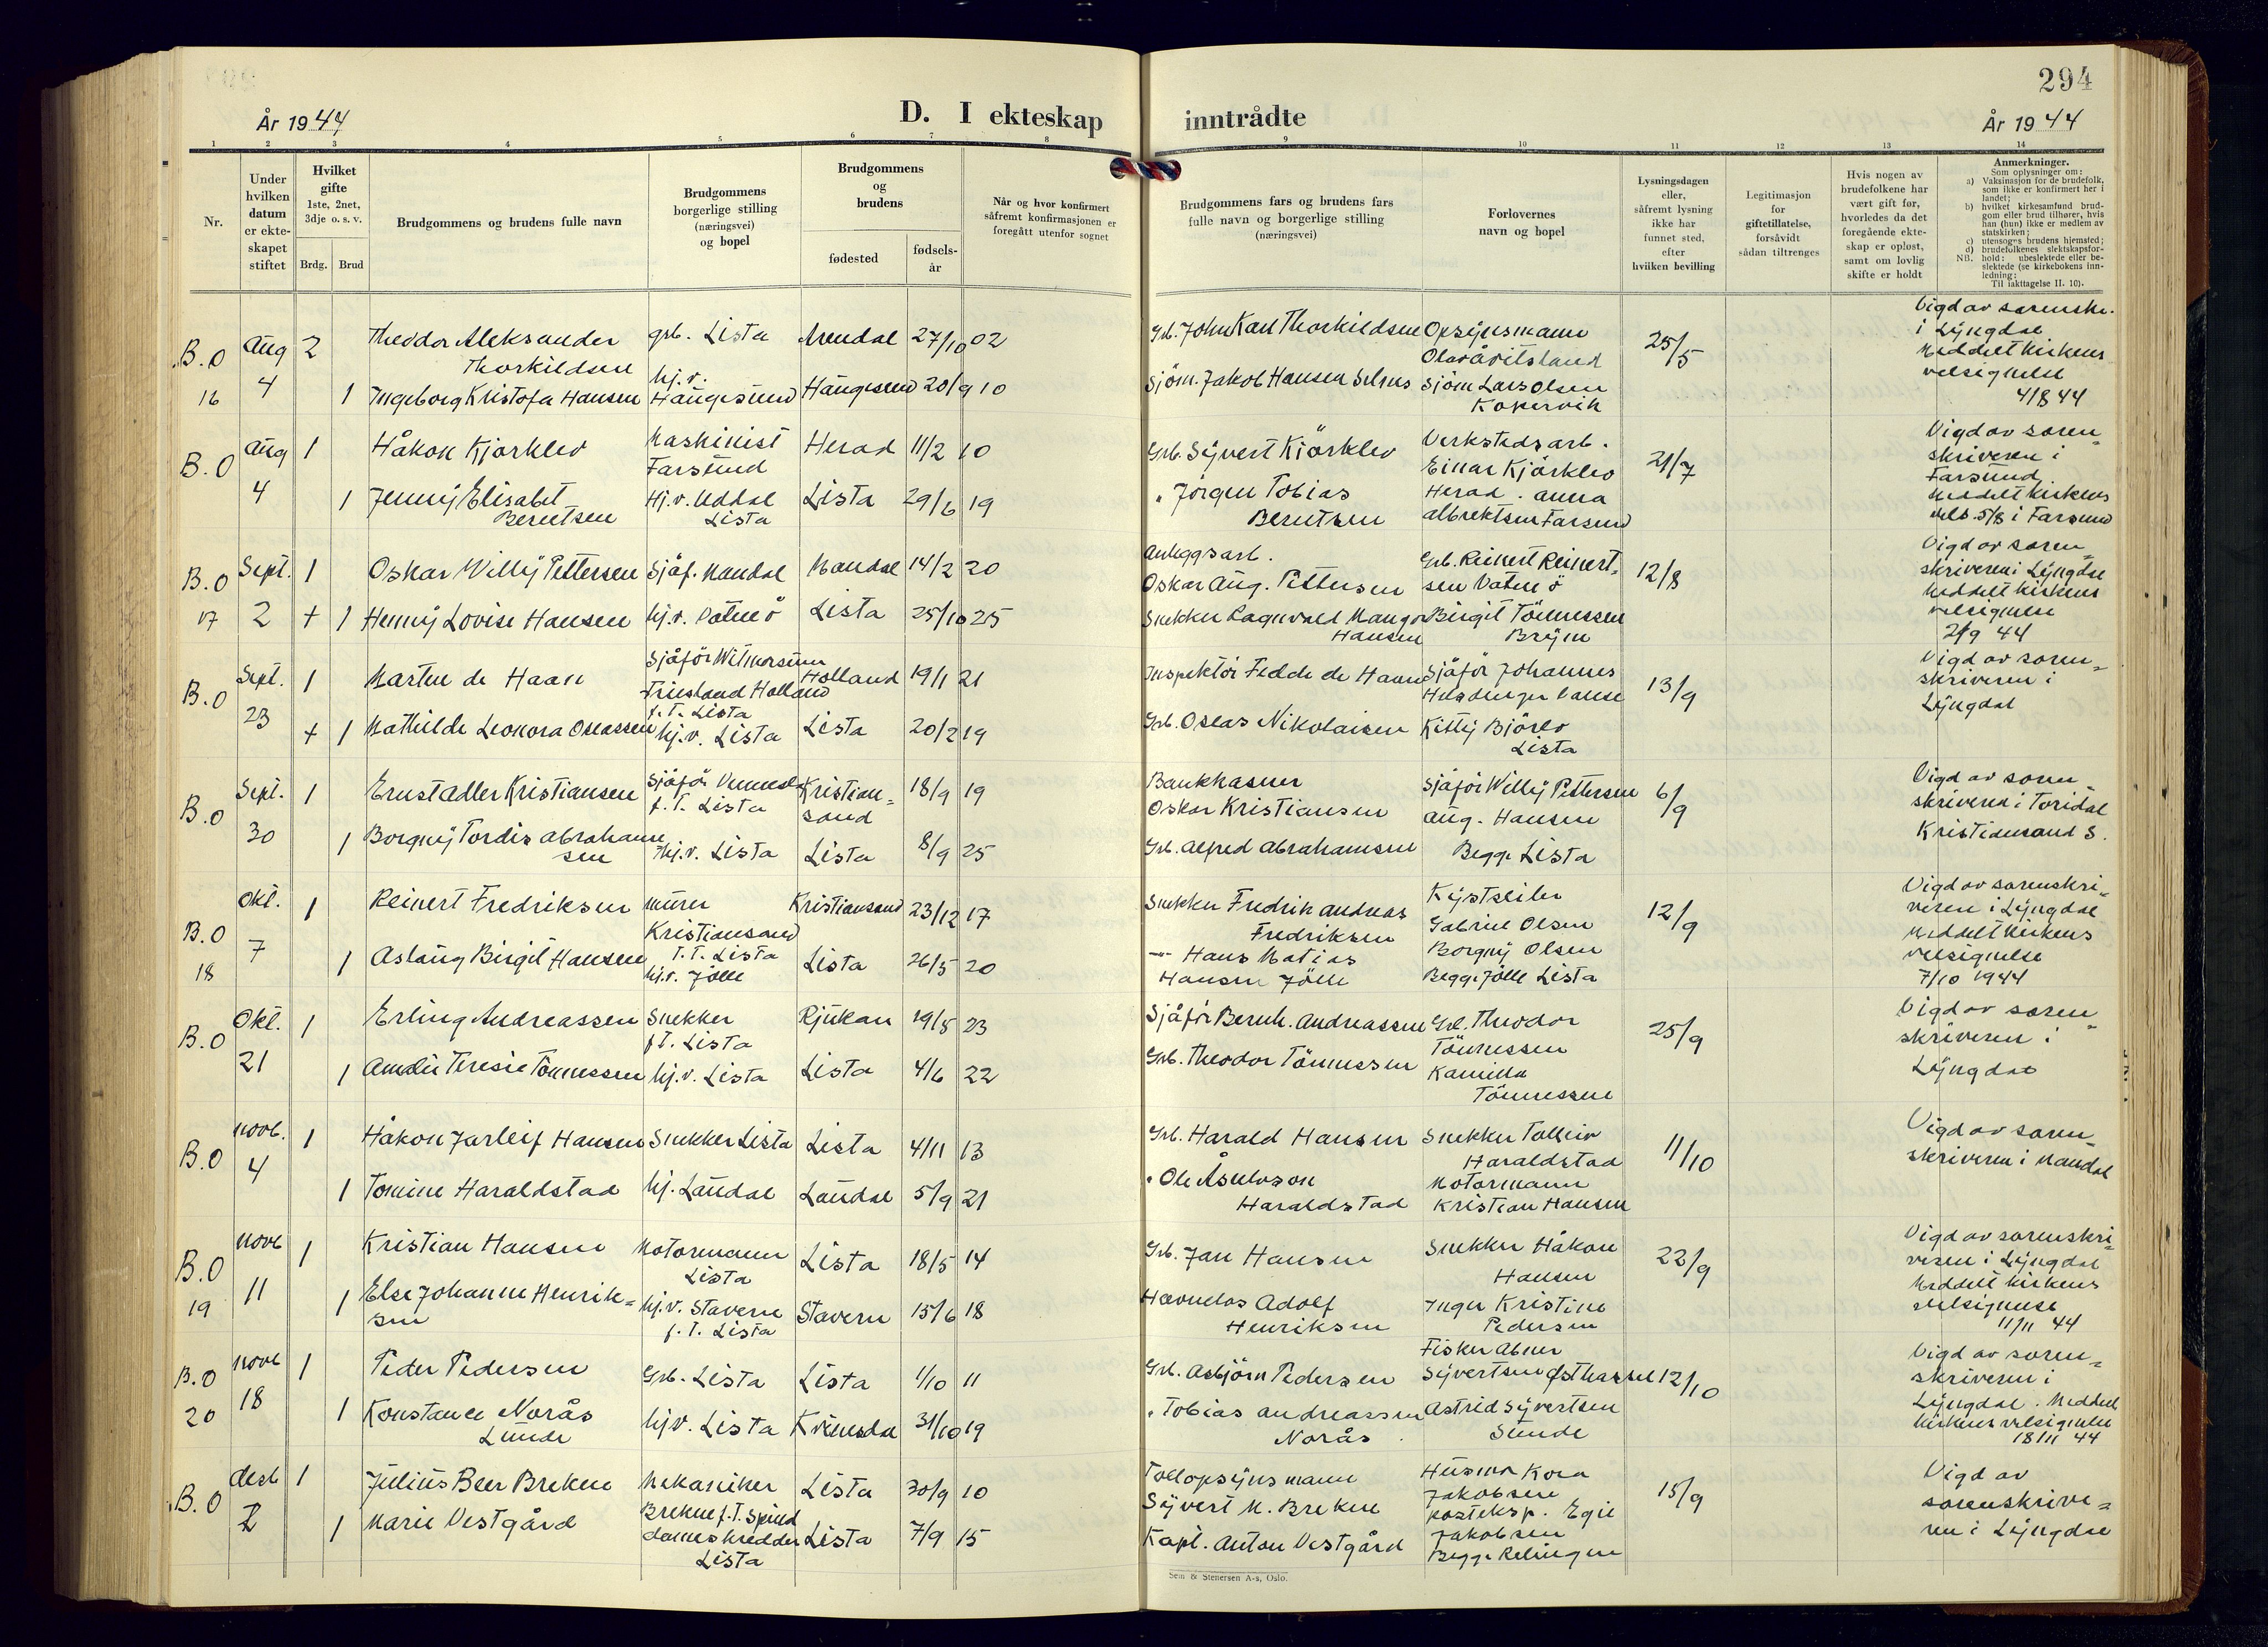 294
År 1944
D. I ekteskap
inntrådte
År 1944
1 2 3 4 5 6 7 8 9 10 11 12 13 14
Nr.
Under
hvilken
datum
er ekte-
skapet
stiftet
Hvilket
gifte
1ste, 2net,
3dje o. s. v.
Brdg. Brud
Brudgommens og brudens fulle navn
Brudgommens
borgerlige stilling
(næringsvei)
og bopel
Brudgommens
og
brudens
fødested
fødsels-
år
Når og hvor konfirmert
såfremt konfirmasjonen er
foregått utenfor sognet
Brudgommens fars og brudens fars
fulle navn og borgerlige stilling
(næringsvei)
Forlovernes
navn og bopel
Lysningsdagen
eller,
såfremt lysning
ikke har
funnet sted,
efter
hvilken bevilling
Legitimasjon
for
giftetillatelse,
forsåvidt
sådan tiltrenges
Hvis nogen av
brudefolkene har
vært gift før,
hvorledes da det
foregående ekte-
skap er opløst,
samt om lovlig
skifte er holdt
Anmerkninger.
Som oplysninger om:
a) Vaksinasjon for de brudefolk,
som ikke er konfirmert her i
landet;
b) hvilket kirkesamfund brud-
gom eller brud tilhører, hvis
han (hun) ikke er medlem av
statskirken;
c) utensogns brudens hjemsted;
d) brudefolkenes slektskapsfor-
hold: ubeslektede eller be-
slektede (se kirkebokens inn-
ledning:
NB. Til iakttagelse II. 10).
B.O
16
Aug
4
2
1
Theodor Aleksander
Thorkildsen
Ingeborg Kristofa Hansen
grb. Lista
hj.v.
Haugesund
Arendal 27/10 02
Haugesund 20/9 10
Grb. John Karl Thorkildsen
Sjöm. Jakob Hansen Selnes
Opsynsmann
Olav Åvitsland
Sjöm Lars Olsen
Kopervik
25/5
Vigd av sorenskr.
i Lyngdal
Meddelt kirkens
velsignelse
4/8 44
B.O
Aug
4
1
1
Håkon Kjörklev
Jenny Elisabet
Berntsen
Maskinist
Farsund
Hj.v. Uddal
Lista
Herad 11/2 10
Lista 29/6 19
Grb. Syvert Kjörklev
" Jörgen Tobias
Berntsen
Verkstedsarb.
Einar Kjörklev
Herad. Anna
Albrektsen Farsund
21/7
Vigd av soren-
skriveren i
Farsund
Meddelt kirkens
vels. 5/8 i Farsund
B.O
17
Sept.
2
1
+ 1
Oskar Willy Pettersen
Henny Lovise Hansen
Sjåf. Mandal
hj.v. Vatne ö
Mandal 14/2 20
Lista 25/10 25
Anleggsarb.
Oskar Aug. Pettersen
Snekker Ragnvald Mangor
Hansen
Grb. Reinert Reinert-
sen Vatne ö
Birgit Tönnessen
Bryn
12/8
Vigd av soren-
skriveren i Lyngdal
Meddelt kirkens
velsignelse
2/9 44
B.O
Sept.
23
1
+ 1
Marten de Haan
Mathilde Leonora Oseassen
Sjåför Witmorsum
Friesland Holland
f.T. Lista
hj.v. Lista
Holland 19/1 21
Lista 20/2 19
Inspektör Fedde de Haan
Grb. Oseas Nikolaisen
Sjåför Johannes
Kitty Björlo
Lista
13/9
Vigd av soren-
skriveren i
Lyngdal
B.O
Sept.
30
1
1
Ernst Adler Kristiansen
Borgny Tordis Abraham
sen
Sjåför Vennesla
f.T. Lista
Hj.v. Lista
Kristian-
sand 18/9 19
Lista 8/9 25
Bankkaserer
Oskar Kristiansen
Grb. Alfred Abrahamsen
Sjåför Willy Pettersen
Aug. Hansen
Begge Lista
6/9
Vigd av soren-
skriveren i Toridal
Kristiansand S.
B.O
18
Okt.
7
1
1
Reinert Fredriksen
Aslaug Birgit Hansen
Murer
Kristiansand
f.T. Lista
hj.v. Jölle
Kristiansand 23/12 17
Lista 26/5 20
Snekker Fredrik Andreas
Fredriksen
-"- Hans Matias
Hansen Jölle
Kystseiler
Gabriel Olsen
Borgny Olsen
Begge Jölle Lista
12/9
Vigd av sorenskri-
veren i Lyngdal
Meddelt kirkens
velsignelse
7/10 1944
B.O
Okt.
21
1
1
Erling Andreassen
Amalie Teresie Tönnessen
Snekker
f.T. Lista
hj.v. Lista
Rjukan 19/8 23
Lista 4/6 22
Sjåför Bernh. Andreassen
Grb. Theodor Tönnessen
Grb. Theodor
Tönnessen
Kamilla
Tönnessen
25/9
Vigd av soren-
skriveren i
Lyngdal
B.O
Novb.
4
1
1
Håkon Jarleif Hansen
Tomine Haraldstad
Snekker Lista
hj. Laudal
Lista 4/11 13
Laudal 5/9 21
Grb. Harald Hansen
" Ole Åsulvson
Haraldstad
Snekker Tolleiv
Haraldstad
Motormann
Kristian Hansen
11/10
Vigd av soren-
skriveren i Mandal
B.O
19
Novb
11
1
1
Kristian Hansen
Else Johanne Henrik-
sen
Motormann
Lista
hj.v. Stavern
f.T. Lista
Lista 18/5 14
Stavern 15/6 18
Grb. Jan Hansen
Havnelos Adolf
Henriksen
Snekker Håkon
Hansen
Inger Kristine
Pedersen
22/9
Vigd av sorenskri-
veren i Lyngdal
Meddelt kirkens
velsignelse
11/11 44
B.O
20
Novb
18
1
1
Peder Pedersen
Konstance Norås
Lunde
Grb. Lista
hjv. Lista
Lista 1/10 11
Kvinesdal 31/10 19
Grb. Asbjörn Pedersen
" Tobias Andreassen
Norås
Fisker Abner
Syvertsen Østhassel
Astrid Syvertsen
Sunde
12/10
Vigd av soren-
skriveren i
Lyngdal. Meddelt
kirkens velsignelse
18/11 44
B.O
Desb
2
1
1
Julius Beer Brekne
Marie Vestgård
Mekaniker
Brekne f.T. Spind
dameskredder
Lista
Lista 30/9 10
Lista 7/9 15
Tollopsynsmann
Syvert M. Brekne
Kapt. Anton Vestgård
Husmor Kora
Jakobsen
posteksp. Egil
Jakobsen
Begge
15/9
Vigd av
sorenskrive-
ren i Lyngdal
Sem & Stenersen A-s, Oslo.